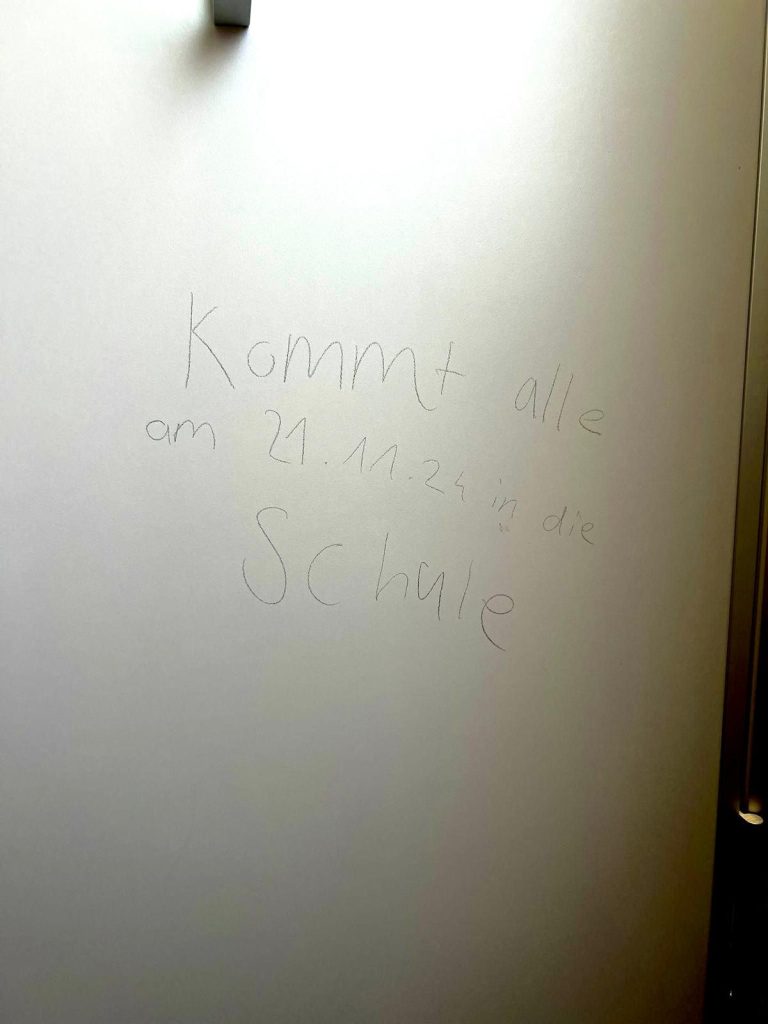 Kommt alle
am 21.11.24 in die
Schule